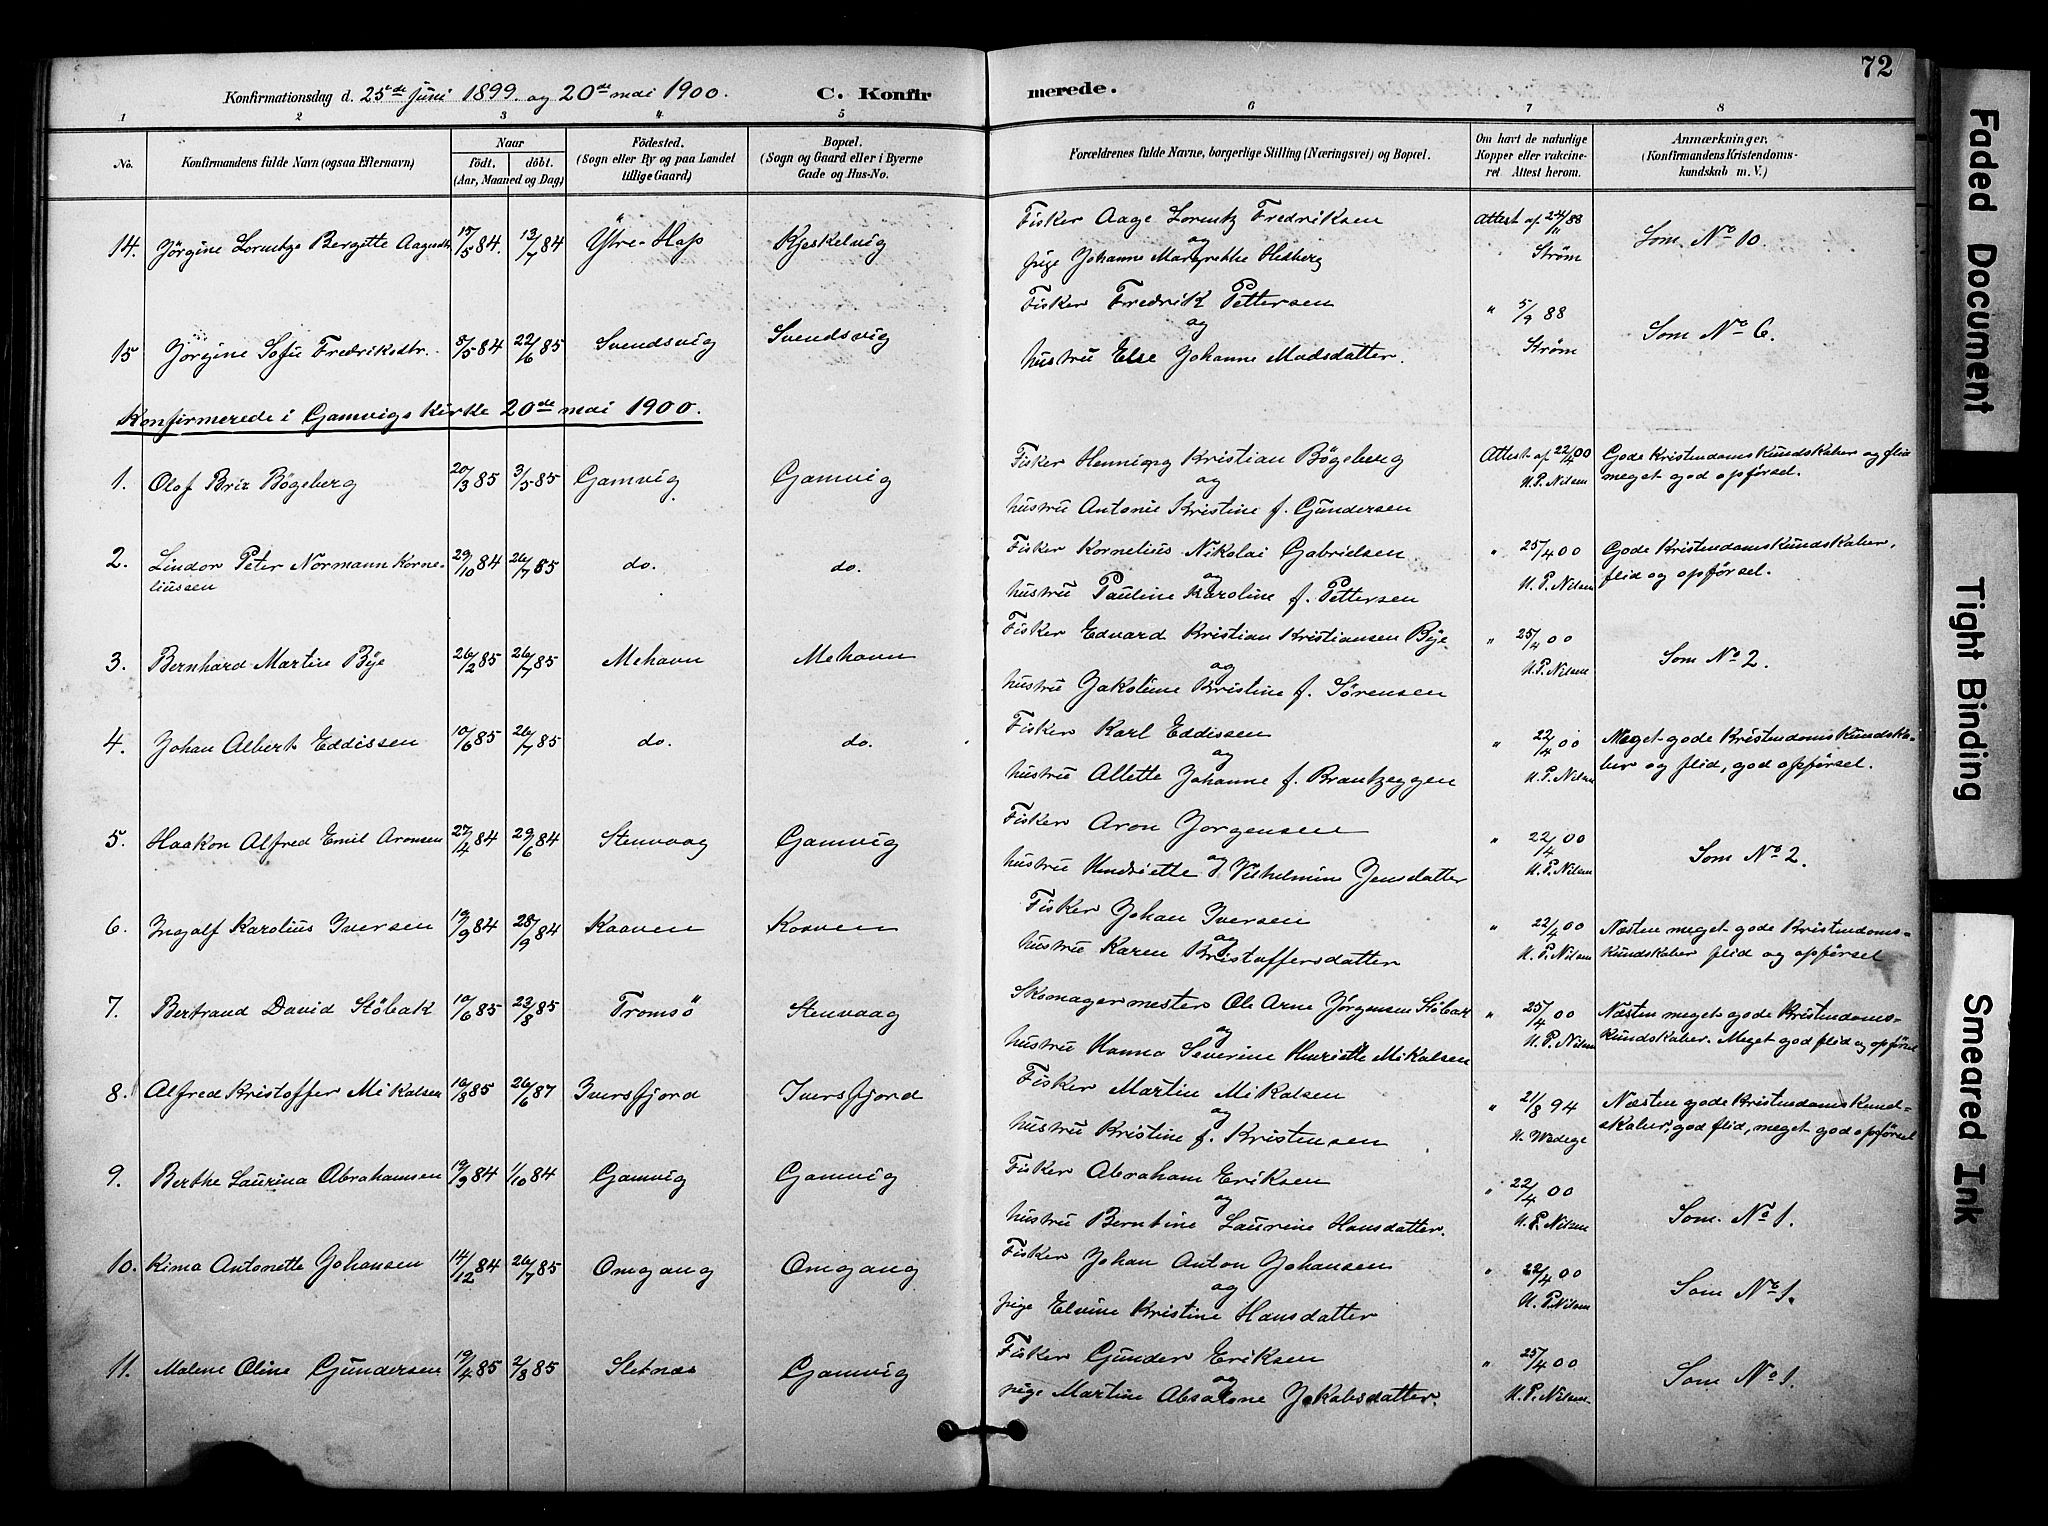 72
Konfirmationsdag d. 25de Juni 1899. og 20de mai 1900. C. Konfirmerede.
1 2 3 4 5 6 7 8
No. Konfirmandens fulde Navn (ogsaa Efternavn) Naar født. døbt. (Aar, Maaned og Dag) Fødested. (Sogn eller By og paa Landet tillige Gaard) Bopæl. (Sogn og Gaard eller i Byerne Gade og Hus-No. Forældrenes fulde Navne, borgerlige Stilling (Næringsvei) og Bopæl. Om havt de naturlige Kopper eller vakcineret Attest herom. Anmærkninger. (Konfirmandens Kristendomskundskab m. V.)
14. Jørgine Lorentze Bergette Aagesdtr. 17/5 84. 13/7 84 Ytre-Hop Kjeskelvig Fisker Aage Lorentz Fredriksen Attest af 24/11 88 Som No 10.
og
pige Johanne Margrethe Hedberg Strøm
15 Jørgine Sofie Fredriksdtr. 8/5 84 22/6 85 Svendsvig Svendsvig Fisker Fredrik Pettersen " 5/9 88 Som No 6.
og
hustru Else Johanne Madsdatter. Strøm
Konfirmerede i Gamvigs Kirke 20de mai 1900.
1. Olof Brix Bøgeberg 20/3 85 3/5 85 Gamvig Gamvig Fisker Henning Kristian Bøgeberg Attest af 22/4 00 Gode Kristendomskundskaber og flid
og N. P. Nilsen meget god opførsel.
hustru Antonie Kristine f. Gundersen
2. Lindor Peter Normann Korne- 29/10 84 26/7 85 do. do. Fisker Kornelius Nikolai Gabrielsen " 25/4 00 Gode Kristendomskundskaber,
liussen og flid og opførsel.
hustru Pauline Karoline f. Pettersen N. P. Nilsen
3. Bernhard Martin Bye 26/2 85 26/7 85 Mehavn Mehavn Fisker Edvard Kristian Kristiansen Bye " 25/4 00 Som No 2.
og N. P. Nilsen
hustru Jakobine Kristine f. Sørensen
4. Johan Albert Eddissen 10/6 85 26/7 85 do. do. Fisker Karl Eddissen " 22/4 00 Meget gode Kristendomskundska-
og ber og flid, god opførsel.
hustru Allette Johanne f. Brantzeggen N. P. Nilsen
5. Haakon Alfred Emil Aronsen 27/4 84 29/6 84 Stenvaag Gamvig Fisker Aron Jørgensen " 22/4 00 Som No 2.
og N. P. Nilsen
hustru Hendriette Vilhelmine Jensdatter
6. Ingolf Karolius Iversen 19/9 84 28/9 84 Kaaven Koaven Fisker Johan Iversen " 22/4 00 Næsten meget gode Kristendoms-
og N. P. Nilsen kundskaber flid og opførsel
hustru Karen Kristoffersdatter
7. Bertrand David Støbak 10/6 85 23/8 85 Tromsö Stenvaag Skomagermester Ole Arne Jørgensen Støbak " 25/4 00 Næsten meget gode Kristendoms-
og N. P. Nilsen kundskaber. Meget god flid og opførsel
hustru Hanna Severine Henriette Mikalsen
8. Alfred Kristoffer Mikalsen 16/8 85 26/6 87 Iversfjord Iversfjord Fisker Martin Mikalsen " 21/8 94 Næsten gode Kristendomskund-
og N. Wadege skaber, god flid, meget god opførsel
hustru Kristine f. Kristensen
9. Berthe Laurina Abrahamsen 19/9 84 1/10 84 Gamvig Gamvig Fisker Abraham Eriksen " 22/4 00 Som No 1.
og N. P. Nilsen
hustru Berntine Laurine Hansdatter.
10. Kima Antonette Johansen 14/12 84 26/7 85 Omgang Omgang Fisker Johan Anton Johansen " 22/4 00 Som No 1.
og N. P. Nilsen
pige Elvine Kristine Hansdatter
11. Malene Oline Gundersen 19/4 85 2/8 85 Sletnæs Gamvig Fisker Gunder Eriksen " 25/4 00 Som No 1.
og
pige Martine Absalone Jakobsdatter. N. P. Nilsen
Faded Document
Tight Binding
Smeared Ink